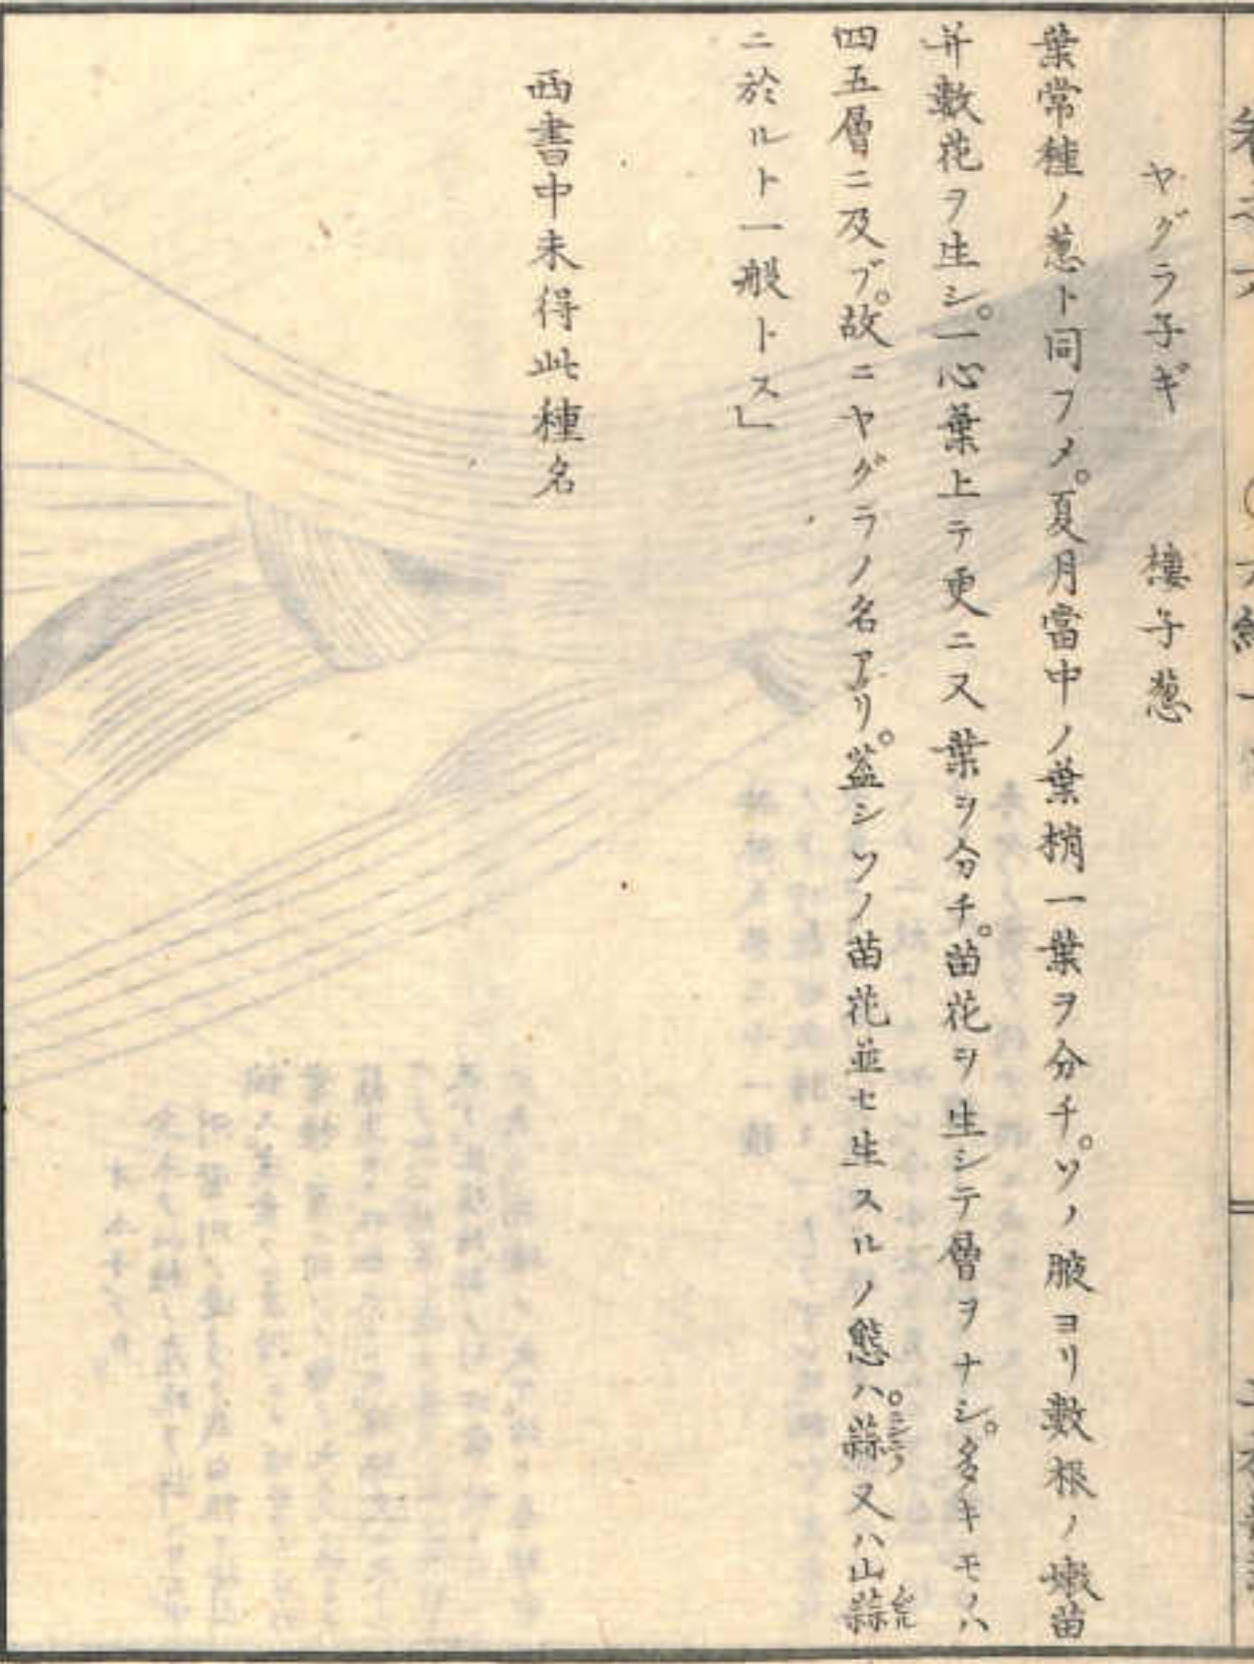 ヤグラ子ギ 樓子葱
葉常種ノ葱ト同フメ。夏月當中ノ葉梢一葉ヲ分チ。ソノ腋ヨリ數根ノ嫩苗
并數花ヲ生シ。一心葉上テ更ニ又葉ヲ分チ。苗花ヲ生シテ層ヲナシ。多キモノハ
四五層ニ及ブ。故ニヤグラノ名アリ。蓋シソノ苗花並セ生スルノ態ハ。蒜又ハ山蒜
ニ於ルト一般トス」
西書中未得此種名